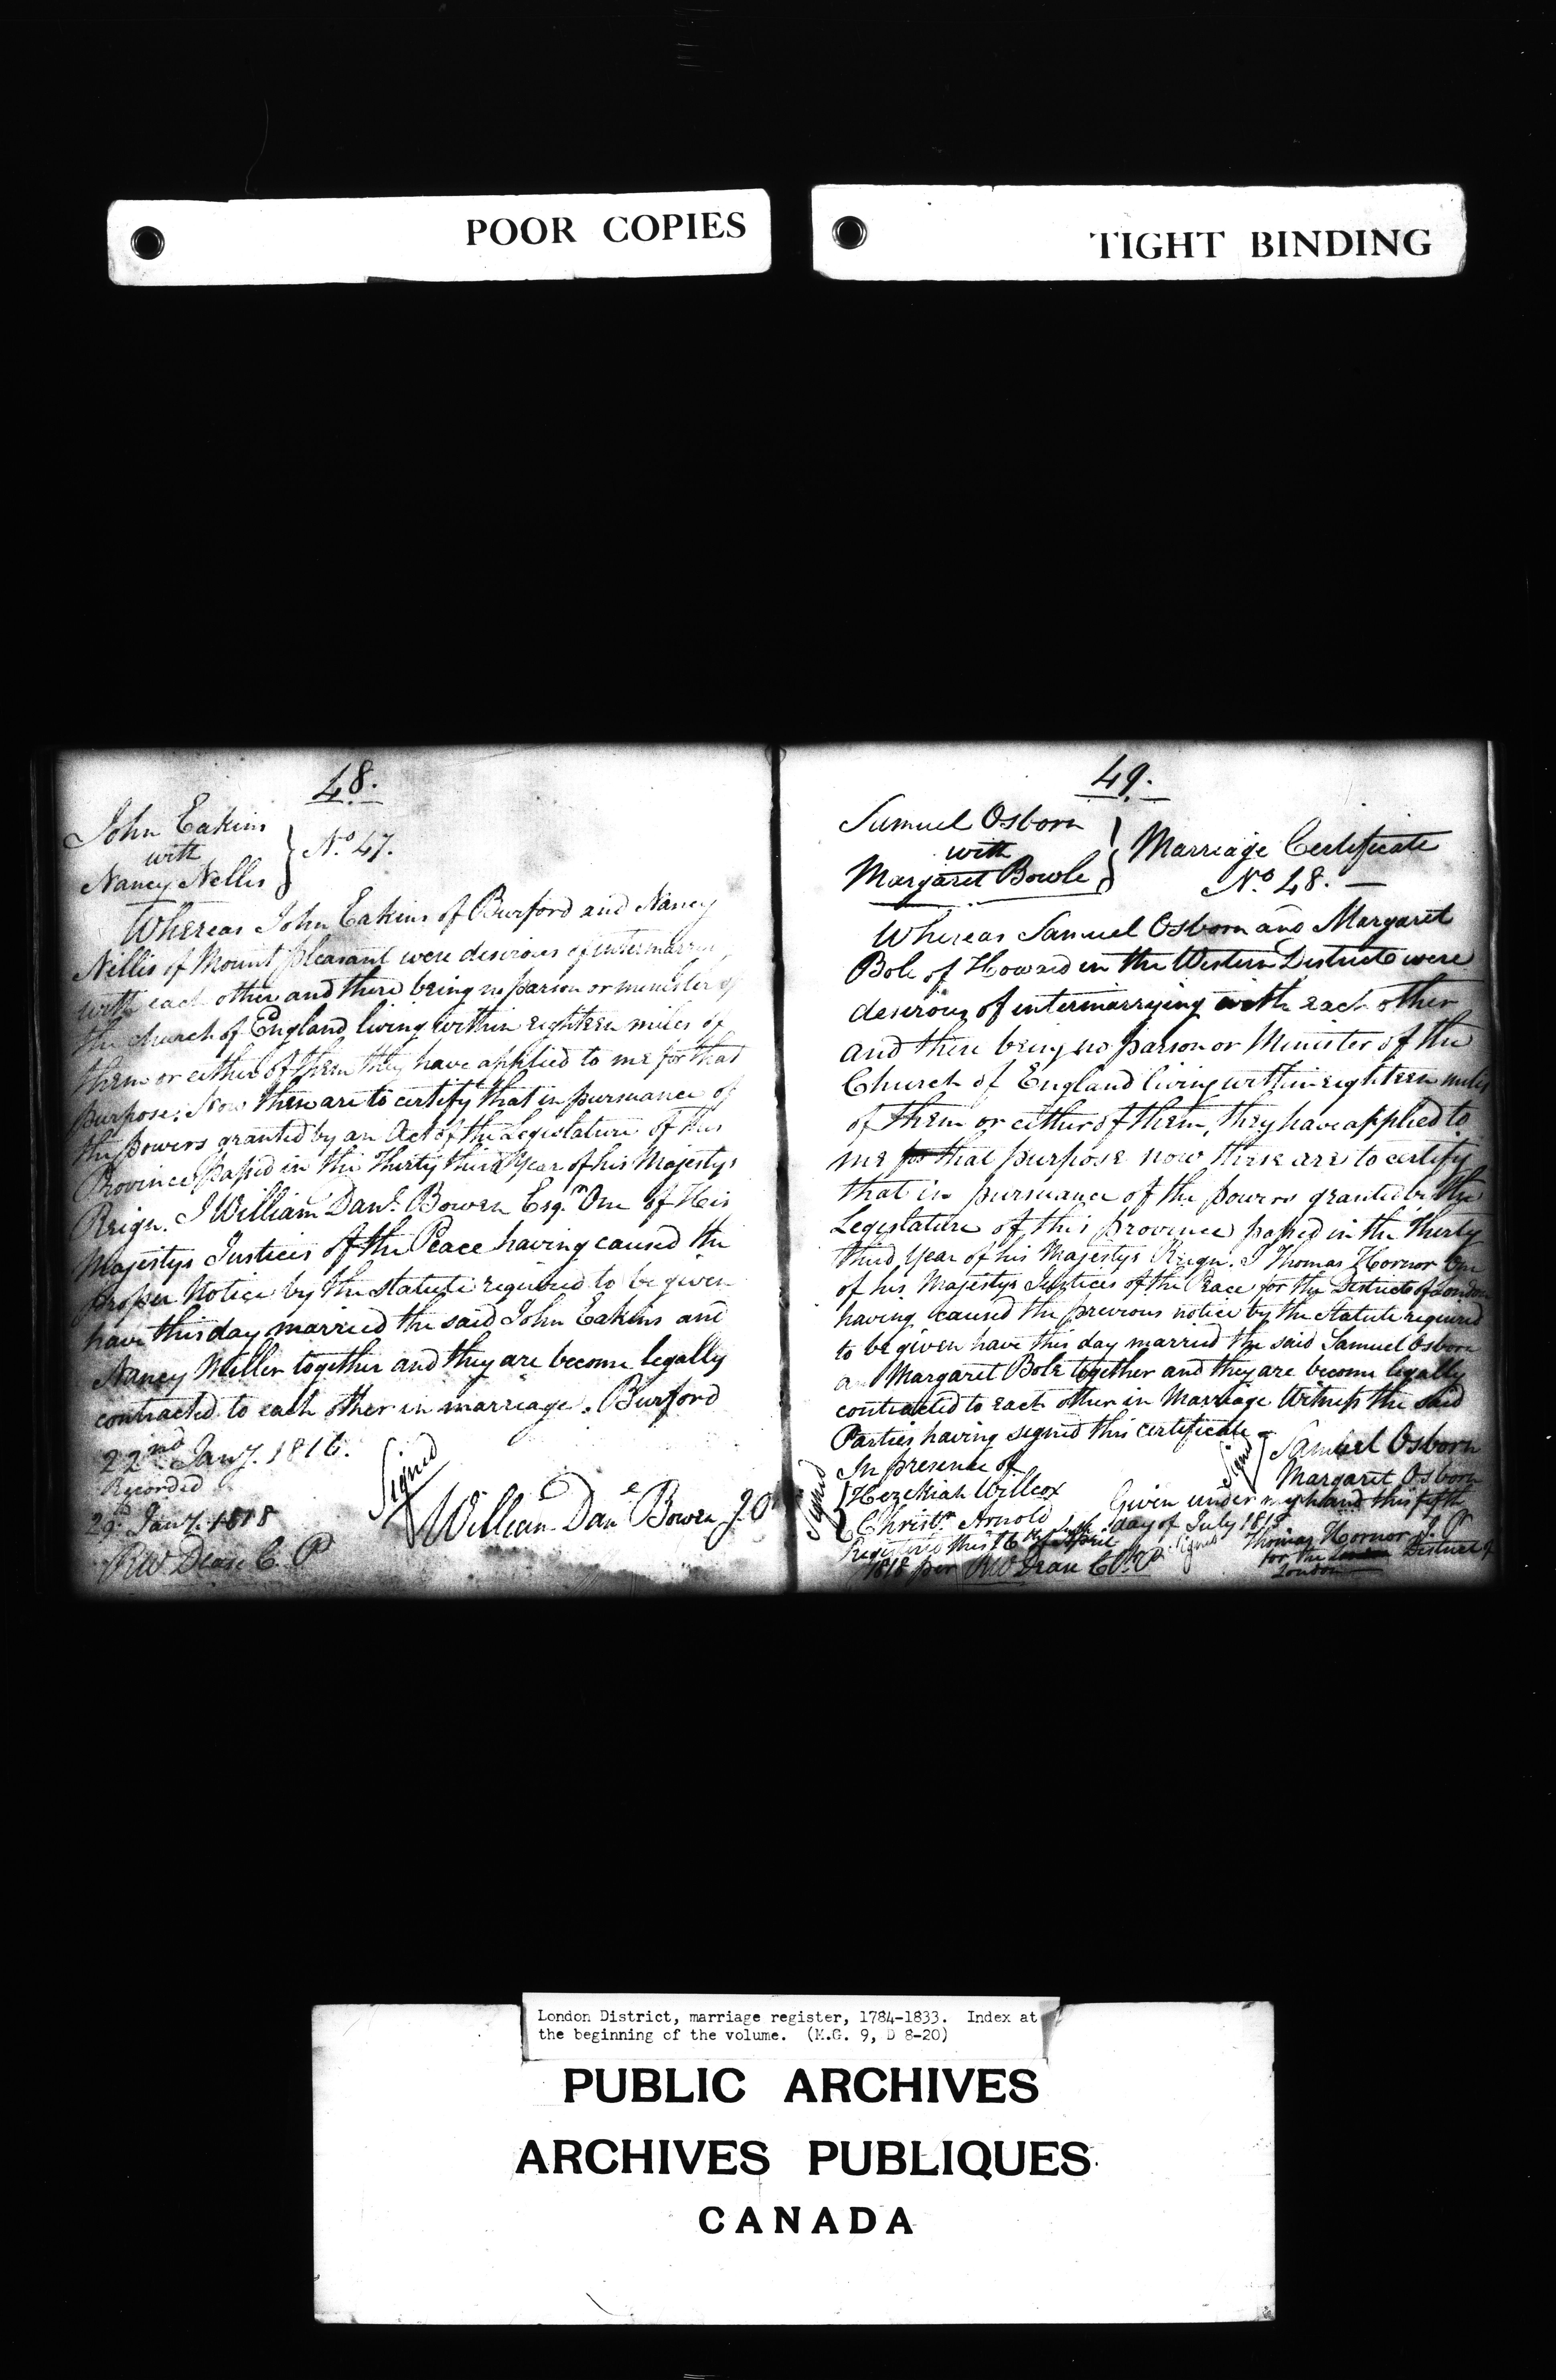 POOR COPIES
TIGHT BINDING
48.
John Eakins
with
Nancy Nellis
No. 47.
Whereas John Eakins of Burford and Nancy
Nellis of Mount pleasant were desirous of intermarry
with each other and there being no parson or minister of
the church of England living within eighteen miles of
them or either of them they have applied to me for that
purpose. Now these are to certify that in pursuance of
the powers granted by an Act of the Legislature of this
Province passed in the Thirty third Year of his Majestys
Reign. I William Danl. Bowen Esqr. One of His
Majestys Justices of the Peace having caused the
proper Notice by the statute required to be given
have this day married the said John Eakins and
Nancy together and they are become legally
contracted to each other in marriage. Burford
22nd Jany. 1816.
Recorded
29th Jany. 1818
RW Dease C. P
Signed
William Bowen
49.
Samuel Osborn
with
Margaret Bowle
Marriage Certificate
No. 48. —
Whereas Samuel Osborn and Margaret
Bole of Howard in the Western District were
desirous of intermarrying with each other
and there being no parson or Minister of the
Church of England living within eighteen miles
of them or either of them, they have applied to
me for that purpose now these are to certify
that in pursuance of the powers granted by the
Legislature of this province passed in the thirty
third year of his Majestys Reign. I Thomas Hornor One
of his Majestys Justices of the Peace for the District of London
having caused the previous notice by the Statute required
to be given have this day married the said Samuel Osborn
and Margaret Bole together and they are become legally
contracted to each other in Marriage Witness the said
Parties having signed this certificate
Signed
Samuel Osborn
Margaret Osborn
In presence of
Signed
Hezekiah Willcox
Christr. Arnold
Given under my hand this fifth
day of July
Registered this 16th
1818 per RW Dease
Signed
Thomas Hornor J. P
for the District of
London
London District, marriage register, 1784-1833. Index at
the beginning of the volume. (M.G. 9, D 8-20)
PUBLIC ARCHIVES
ARCHIVES PUBLIQUES
CANADA